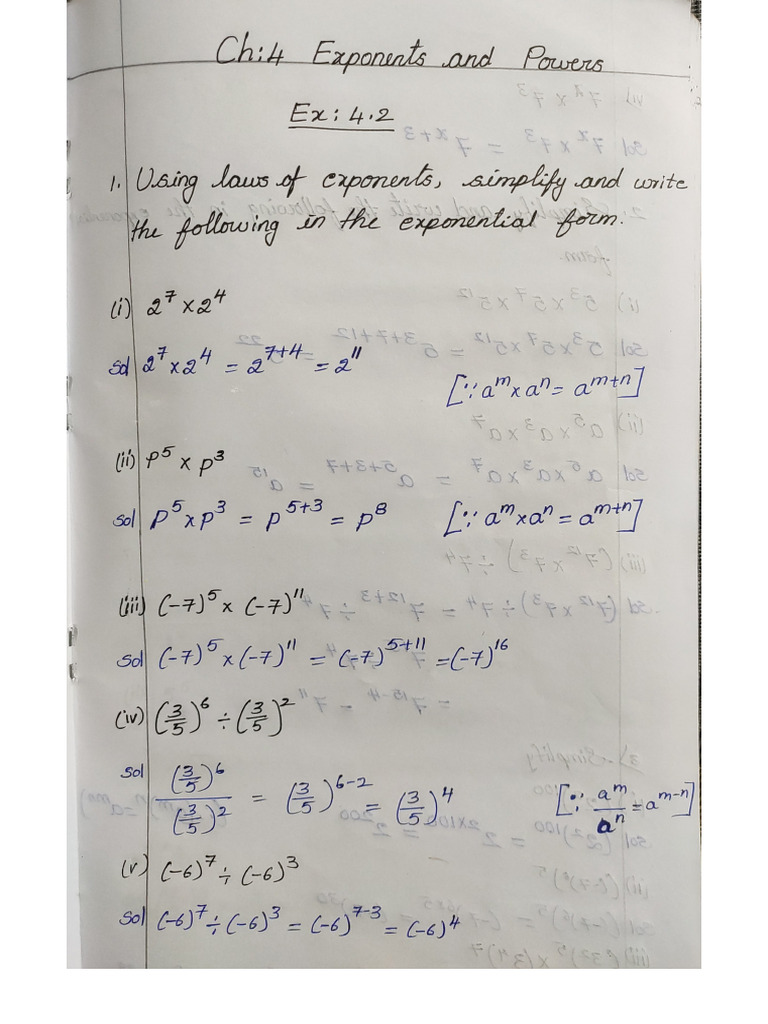 Ch:4 Exponents and Powers
Ex: 4.2
1. Using laws of exponents, simplify and write
the following in the exponential form.
(i) 2⁷ × 2⁴
sol 2⁷ × 2⁴ = 2⁷⁺⁴ = 2¹¹
[∵ aᵐ × aⁿ = aᵐ⁺ⁿ]
(ii) P⁵ × p³
sol p⁵ × p³ = p⁵⁺³ = p⁸ [∵ aᵐ × aⁿ = aᵐ⁺ⁿ]
(iii) (-7)⁵ × (-7)¹¹
sol (-7)⁵ × (-7)¹¹ = (-7)⁵⁺¹¹ = (-7)¹⁶
(iv) (3/5)⁶ ÷ (3/5)²
sol (3/5)⁶ / (3/5)² = (3/5)⁶⁻² = (3/5)⁴ [∵ aᵐ/aⁿ = aᵐ⁻ⁿ]
(v) (-6)⁷ ÷ (-6)³
sol (-6)⁷ ÷ (-6)³ = (-6)⁷⁻³ = (-6)⁴